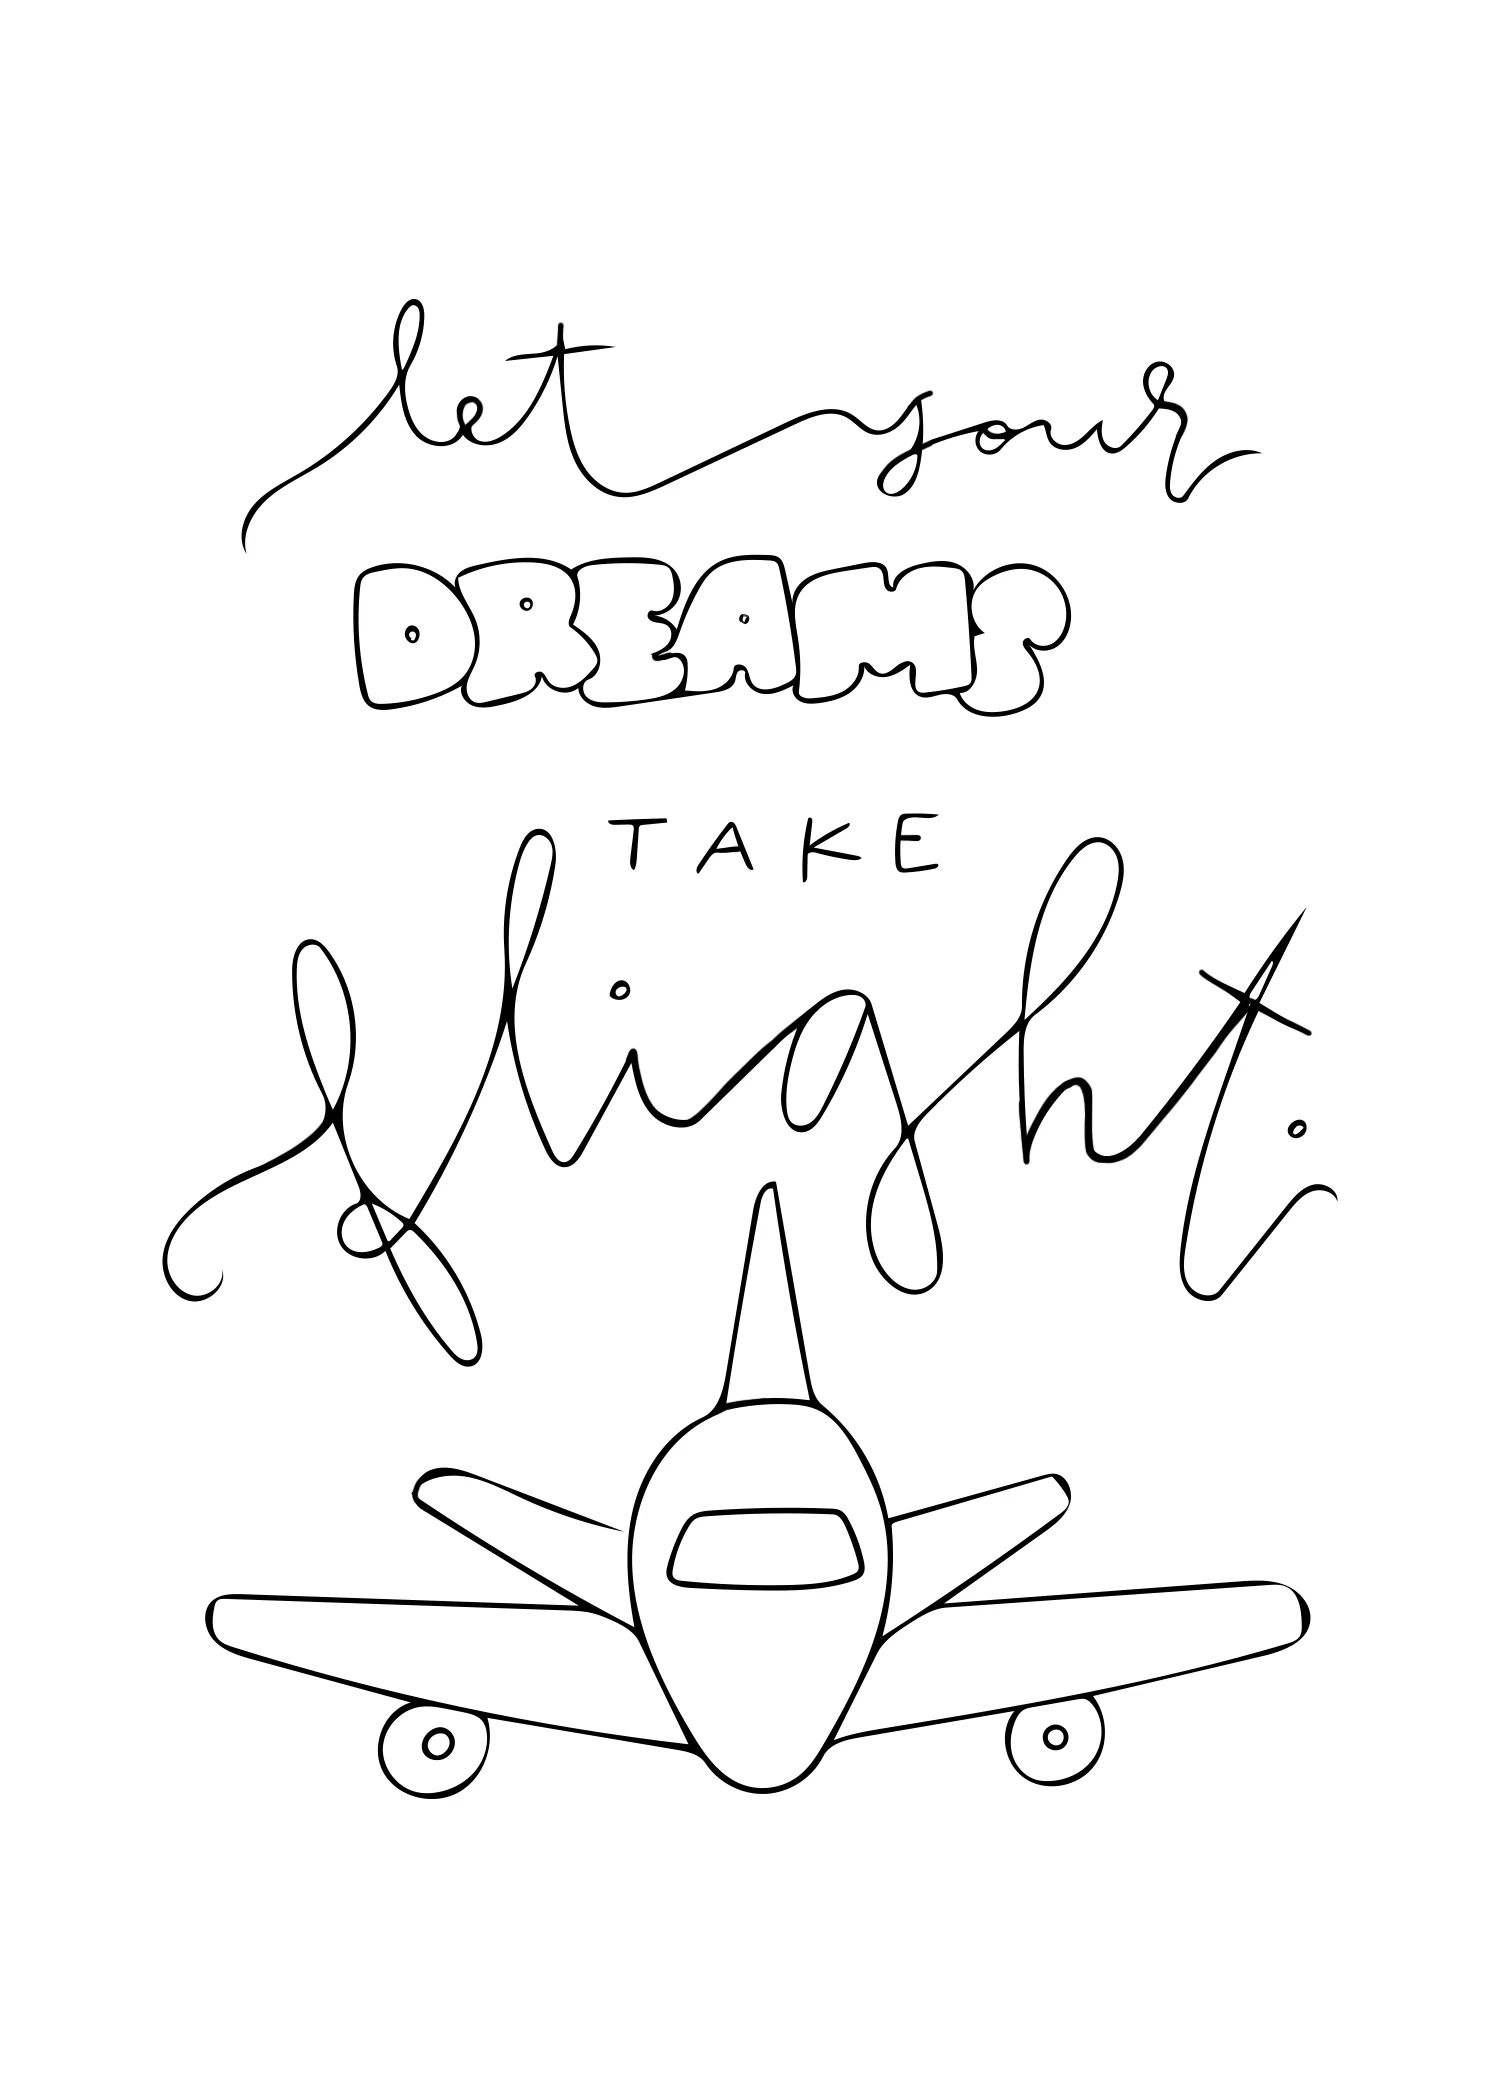 let your
DREAMS
TAKE
flight.